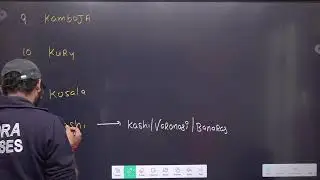 9 KAMBOJA
10 KURU
Kosala
Kashi/Varanasi/Banaras
ORA
SES